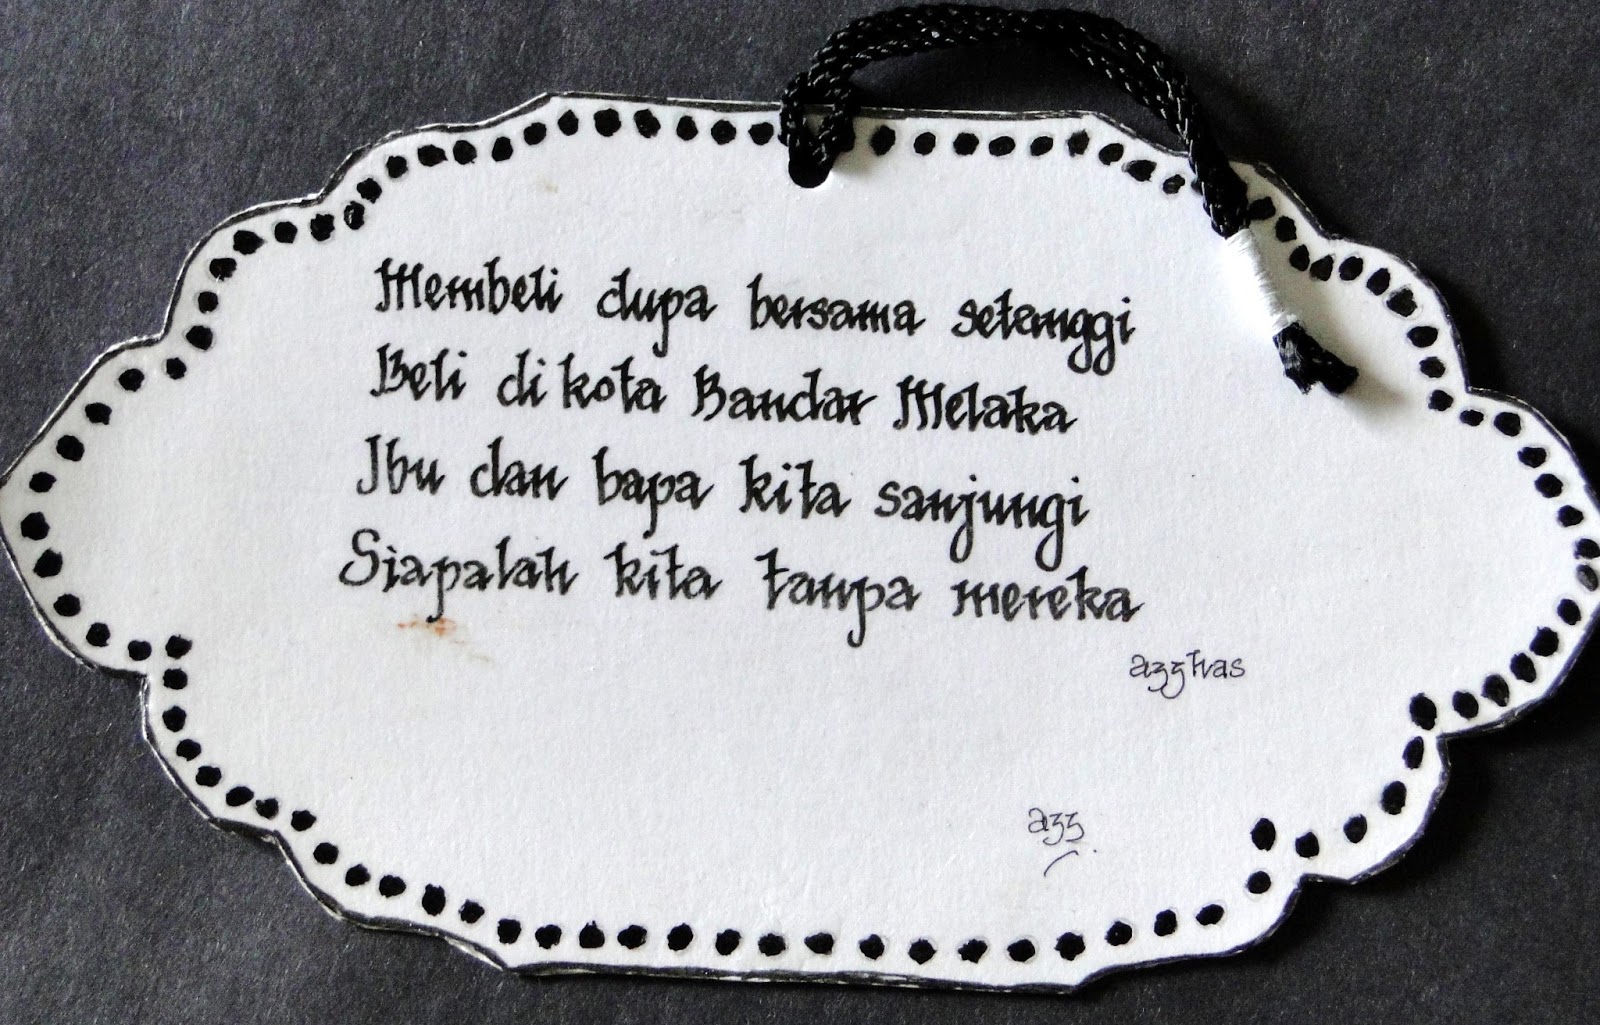 Membeli dupa bersama setanggi
Beli di kota Bandar Melaka
Ibu dan bapa kita sanjungi
Siapalah kita tanpa mereka
azztvas
azz